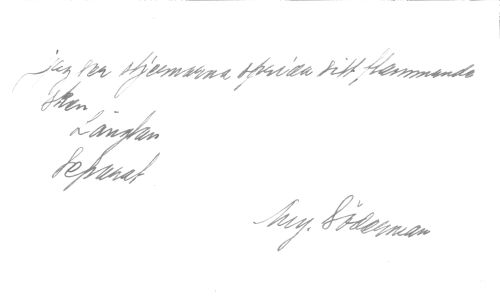 jag ser stjernorna sprida sitt flammande
sken
Längtan
Separat
Aug. Söderman